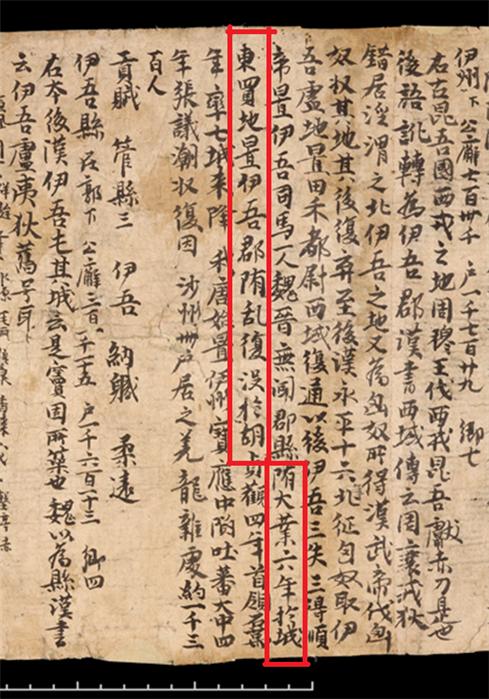 伊州下 公廨七百卅千 戶一千七百廿九 鄉七
右古昆吾國西戎之地周穆王伐西戎昆吾獻赤刀是也
後語訛轉為伊吾郡漢書西域傳云周衰戎狄
錯居涇渭之北伊吾之地又為匈奴所得漢武帝伐匈
奴收其地其後復弃至後漢永平十六北征匈奴取伊
吾盧地置田禾都尉西域復通以後伊吾三失三得順
帝置伊吾司馬一人魏晉無聞郡縣隋大業六年於城
東買地置伊吾郡隋乱復没於胡貞觀四年首領石万
年率七城来降我唐始置伊州寶應中陷吐蕃大中四
年張議潮收復因沙州卅戶居之羌龍雜處約一千三
百人
貢賦 管縣三 伊吾 納職 柔遠
伊吾縣 在郭下 公廨三百一千五 戶一千六百一十三 鄉四
右本後漢伊吾屯其城云是竇固所築也魏以為縣漢書
云伊吾盧夷狄舊号耳